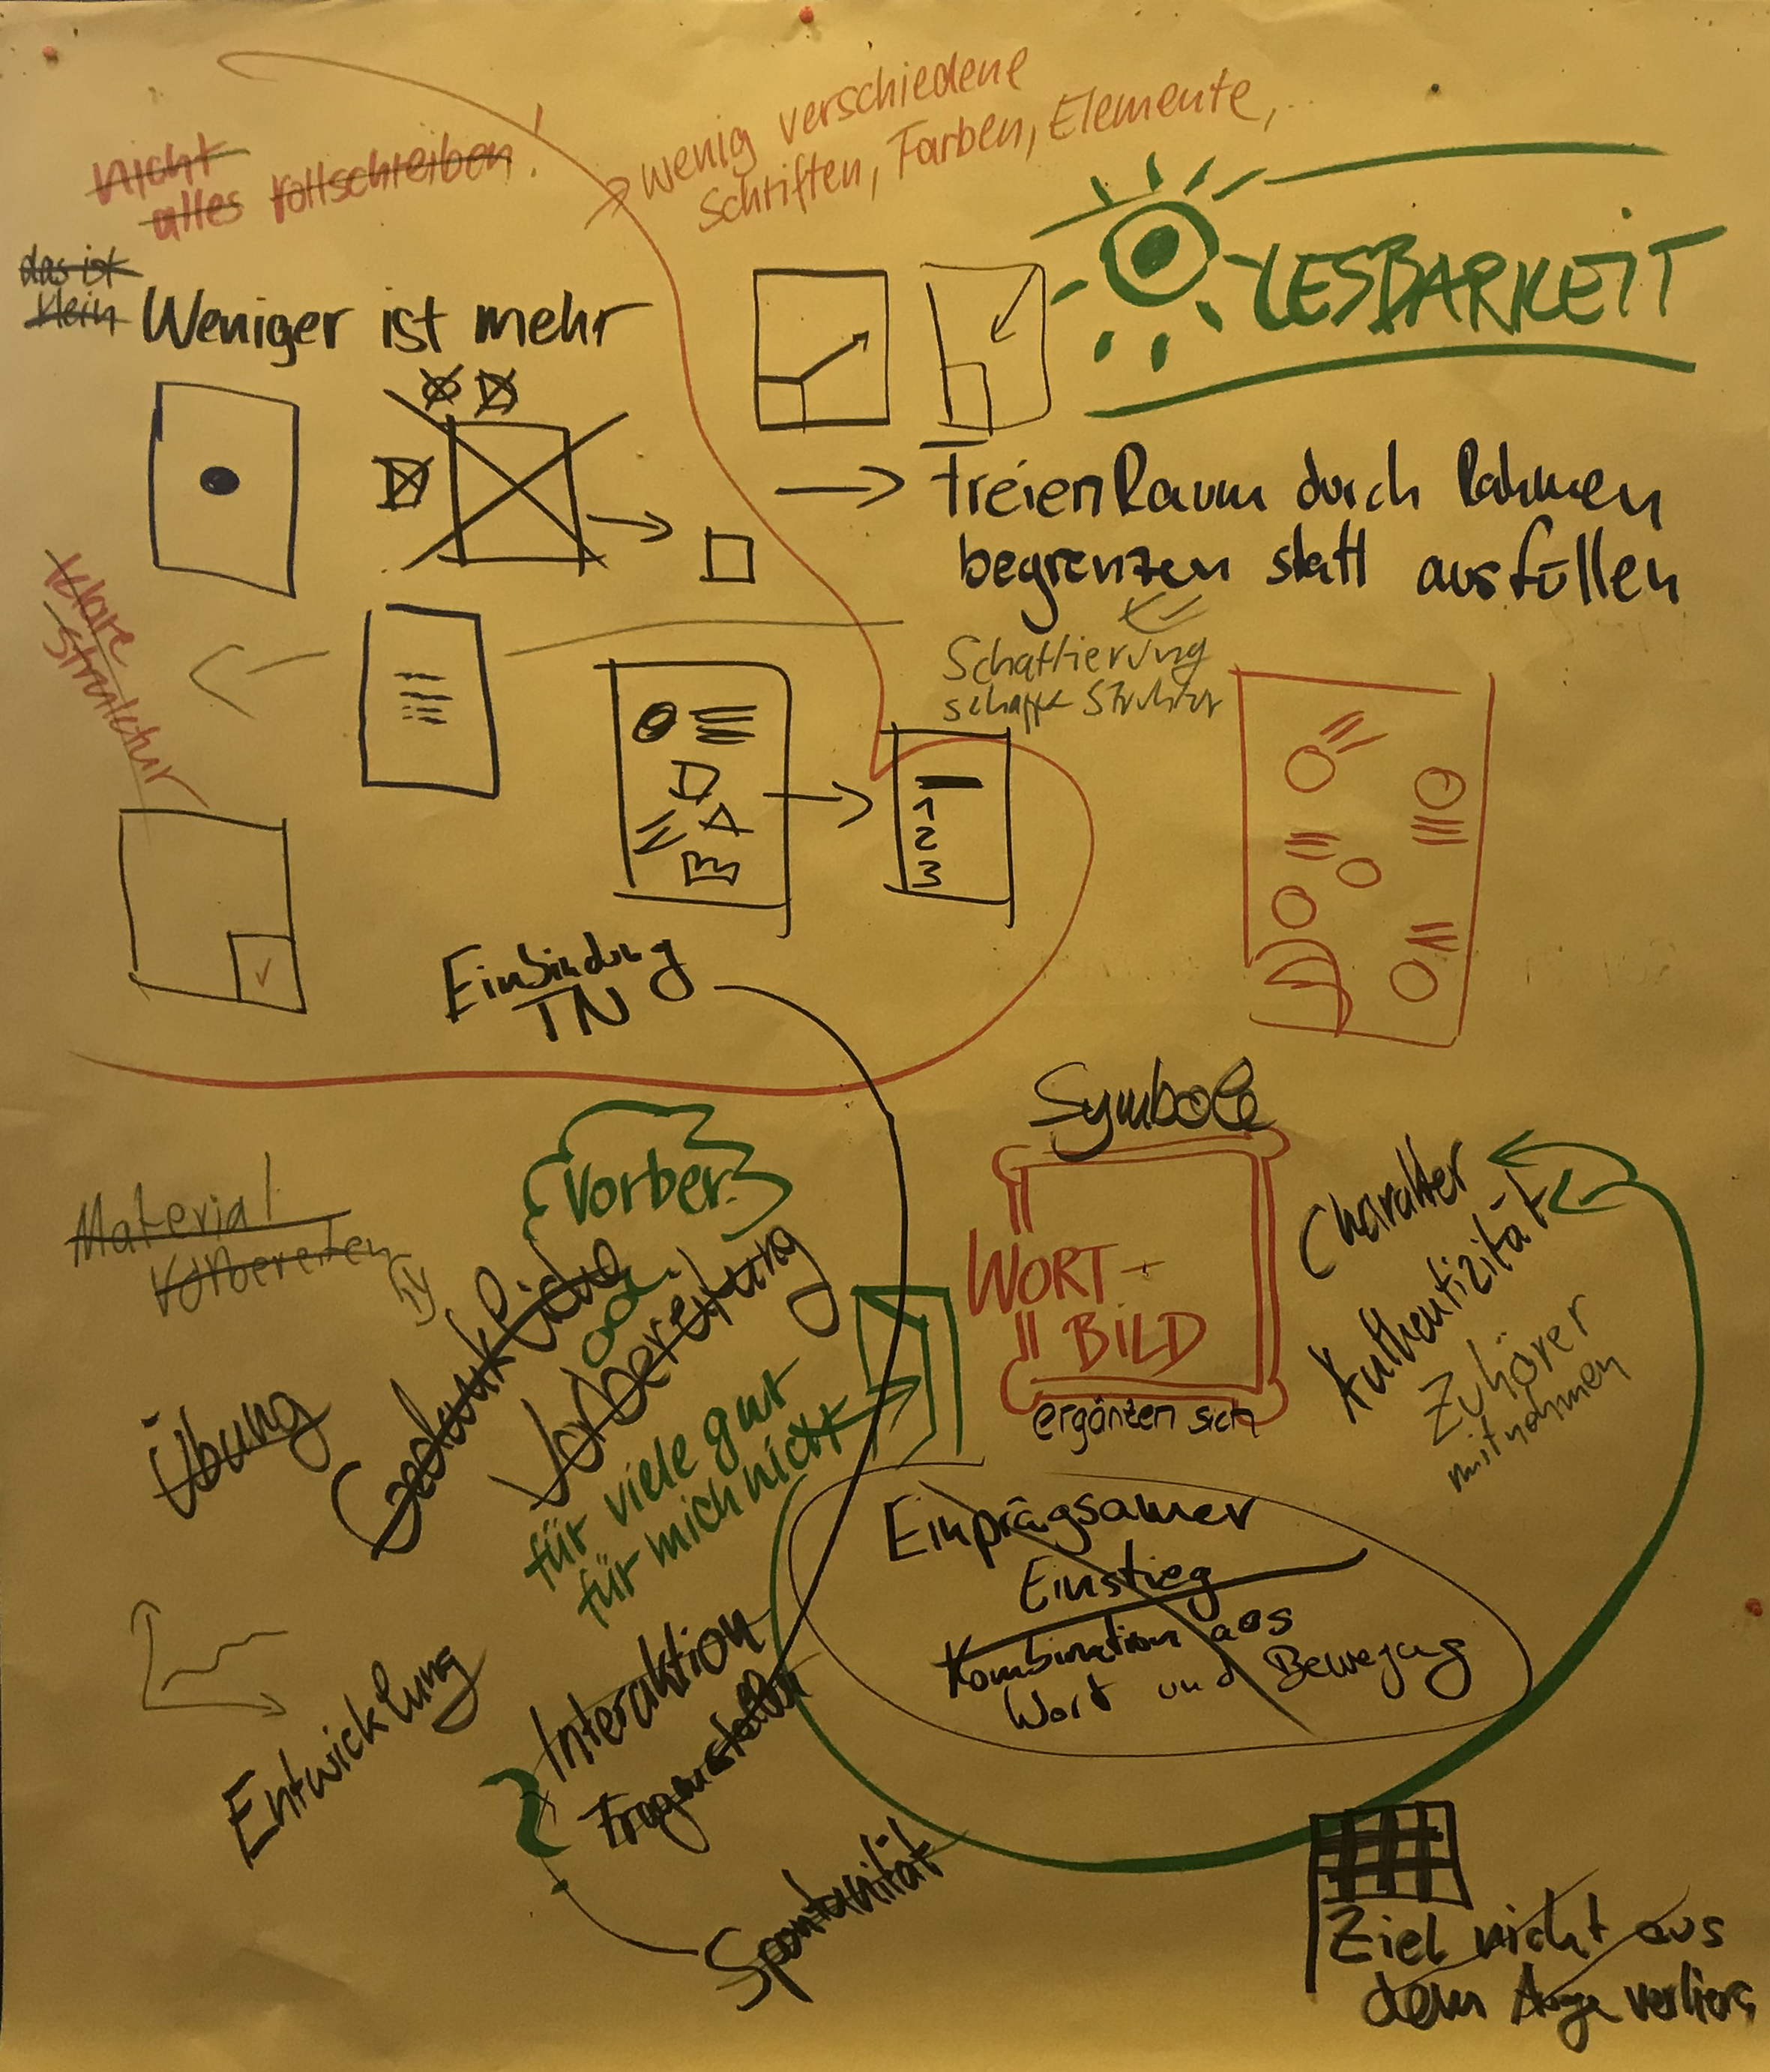 nicht
alles vollschreiben!
wenig verschiedene
Schriften, Farben, Elemente, ...
LESBARKEIT
das ist
klein
Weniger ist mehr
freien Raum durch Rahmen
begrenzen statt ausfüllen
Schattierung
schafft Struktur
klare
Struktur
1
2
3
Einbindung
TN
Symbole
WORT +
BILD
ergänzen sich
Charakter
Authentizität
Zuhörer
mitnehmen
Vorber.
Material
vorbereiten
Gedankliche
Vorbereitung
Übung
für viele gut
für mich nicht
Einprägsamer
Einstieg
Kombination aus
Wort und Bewegung
Interaktion
Entwicklung
Spontanität
Ziel nicht aus
dem Auge verliers